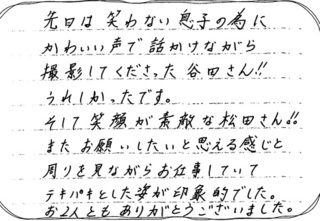 先日は笑わない息子の為に
かわいい声で話かけながら
撮影してくださった谷田さん!!
うれしかったです。
そして笑顔が素敵な松田さん!!
またお願いしたいと思える感じと
周りを見ながらお仕事していて
テキパキとした姿が印象的でした。
お2人ともありがとうございました。